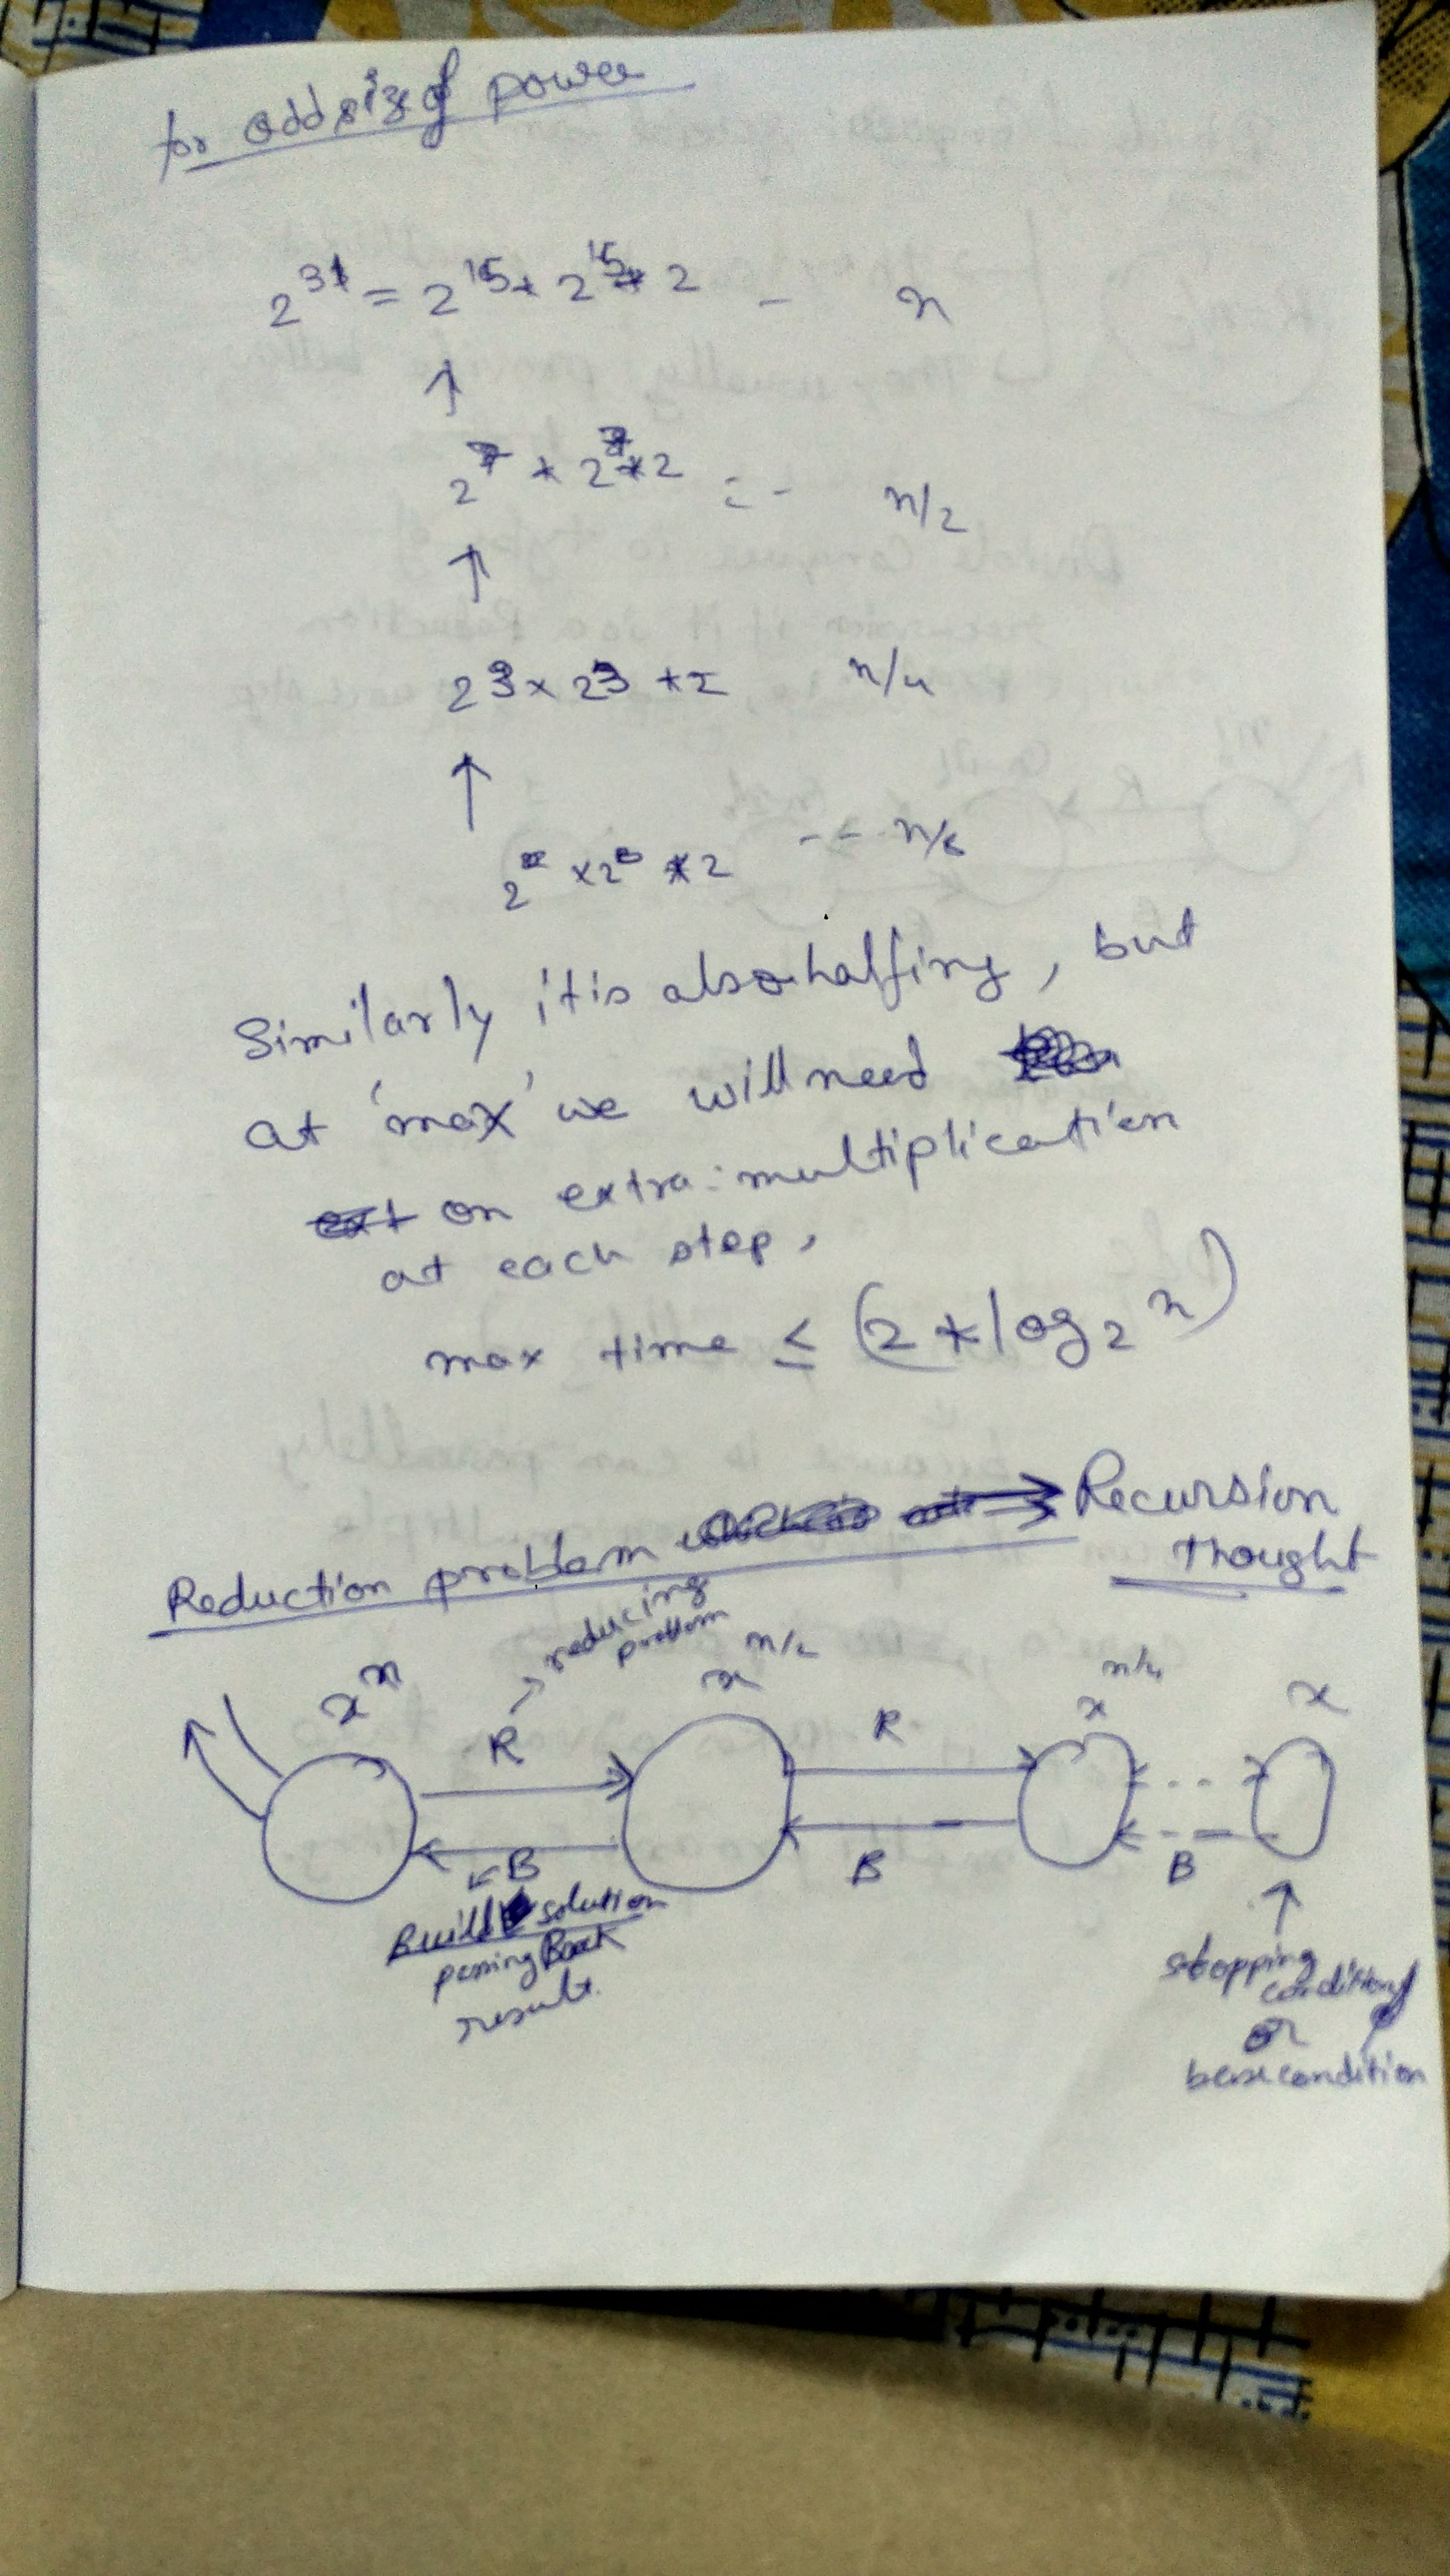 for odd size of power
2^31 = 2^15 * 2^15 * 2 - n
↑
2^7 * 2^7 * 2 = - n/2
↑
2^3 x 2^3 * 2 n/4
↑
2 x 2 * 2 -- n/8
Similarly it is also halfing, but
at 'max' we will need
on extra multiplication
at each step,
max time ≤ (2 * log₂ n)
Reduction problem → Recursion
thought
→ reducing
problem
x^n R x^n/2 R x^n/4 x
B B B
Build solution
passing Back
result.
↑
stopping
condition
or
base condition